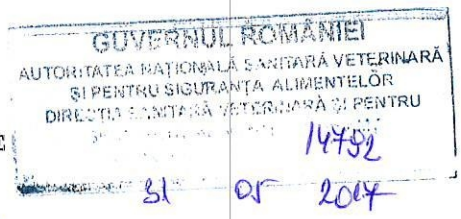 GUVERNUL ROMÂNIEI
AUTORITATEA NAȚIONALĂ SANITARĂ VETERINARĂ
ȘI PENTRU SIGURANȚA ALIMENTELOR
DIRECȚIA SANITARĂ VETERINARĂ ȘI PENTRU
14792
31 05 2017